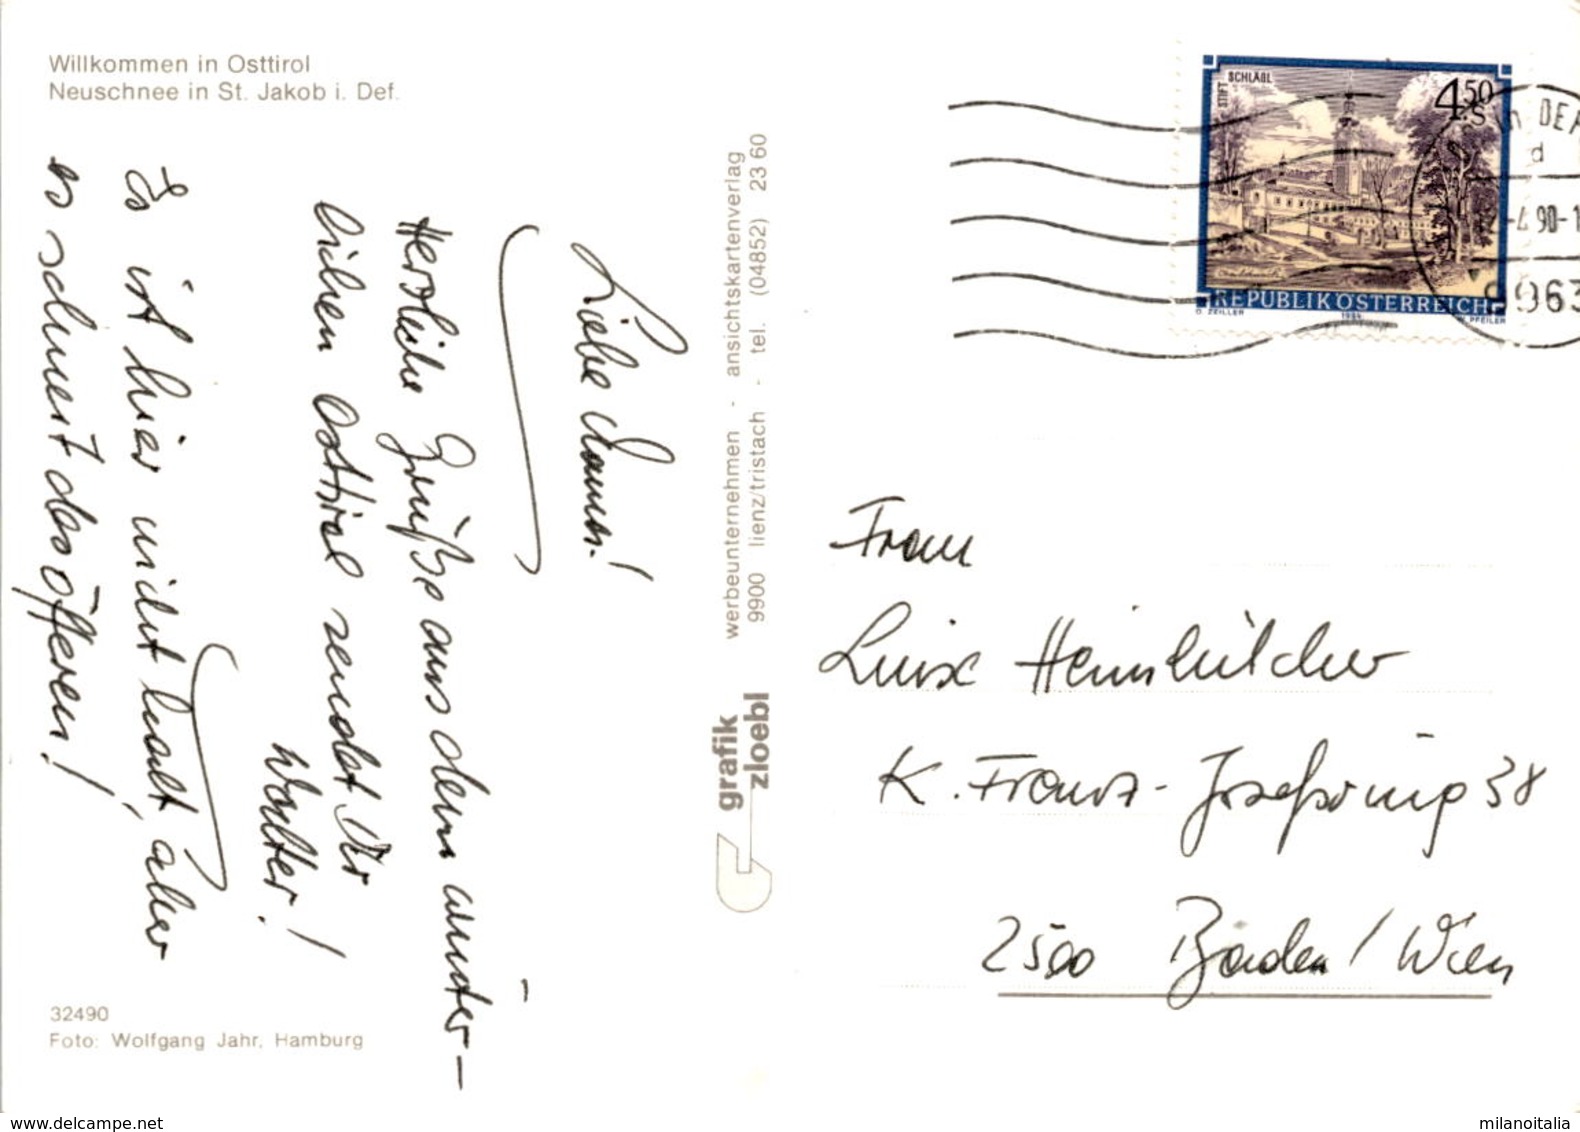 Willkommen in Osttirol
Neuschnee in St. Jakob i. Def.
Liebe
Herzliche Grüße aus dem winter-
lichen Osttirol sendet Dir
Walter!
Es ist hier nicht kalt, aber
es schneit des öfteren!
32490
Foto: Wolfgang Jahr, Hamburg
werbeunternehmen - ansichtskartenverlag
9900 lienz/tristach - tel. (04852) 23 60
grafik
zloebl
STIFT SCHLÄGL
4.50
S
REPUBLIK ÖSTERREICH
O. ZEILLER 1984 W. PFEILER
in DEF
d
-4.90-1
9963
Frau
Luise
K. Franz-Josefsring 38
2500 Baden/Wien
www.delcampe.net
milanoitalia